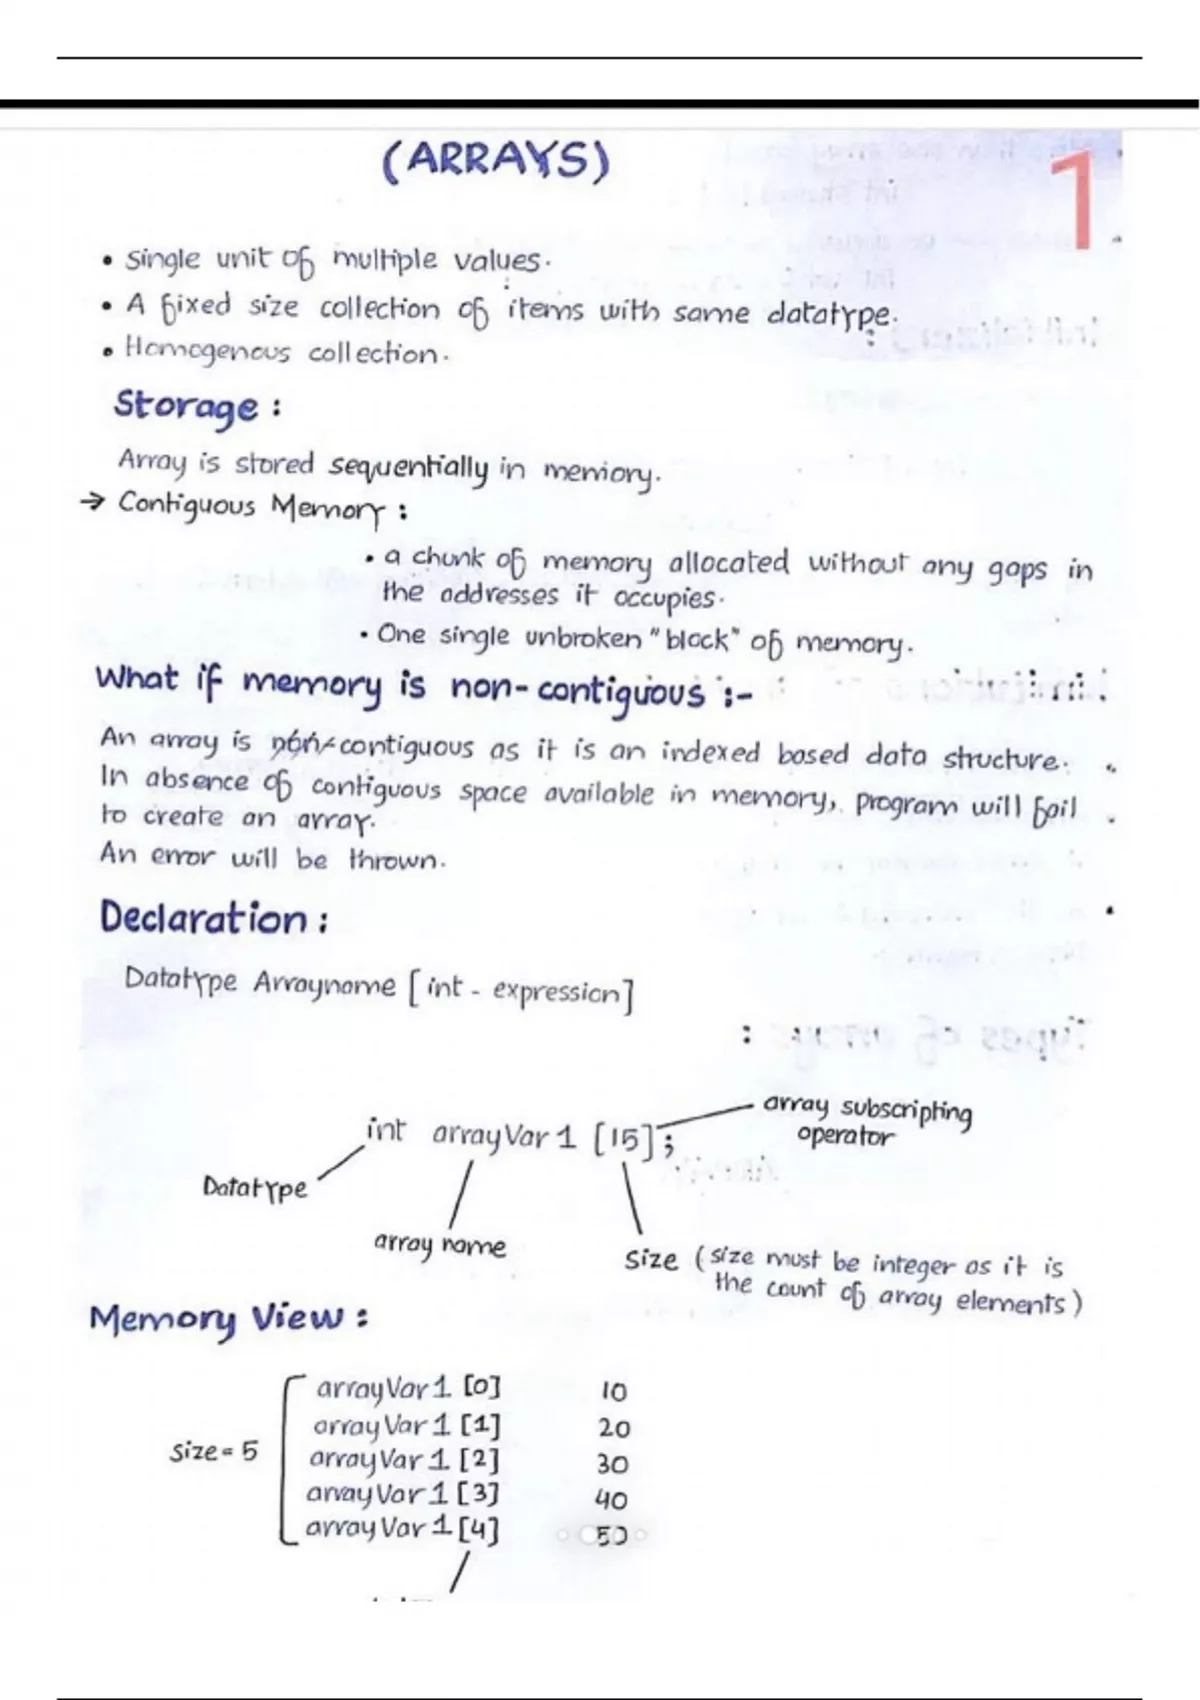 (ARRAYS)
1
• Single unit of multiple values.
• A fixed size collection of items with same datatype.
• Homogenous collection.
Storage :
Array is stored sequentially in memory.
→ Contiguous Memory :
• a chunk of memory allocated without any gaps in
the addresses it occupies.
• One single unbroken "block" of memory.
What if memory is non-contiguous :-
An array is contiguous as it is an indexed based data structure.
In absence of contiguous space available in memory, program will fail
to create an array.
An error will be thrown.
Declaration :
Datatype Arrayname [int - expression]
array subscripting
operator
int arrayVar1 [15];
Datatype
array name
Size (size must be integer as it is
the count of array elements)
Memory View :
arrayVar1 [0] 10
arrayVar1 [1] 20
size = 5 arrayVar1 [2] 30
arrayVar1 [3] 40
arrayVar1 [4] 50